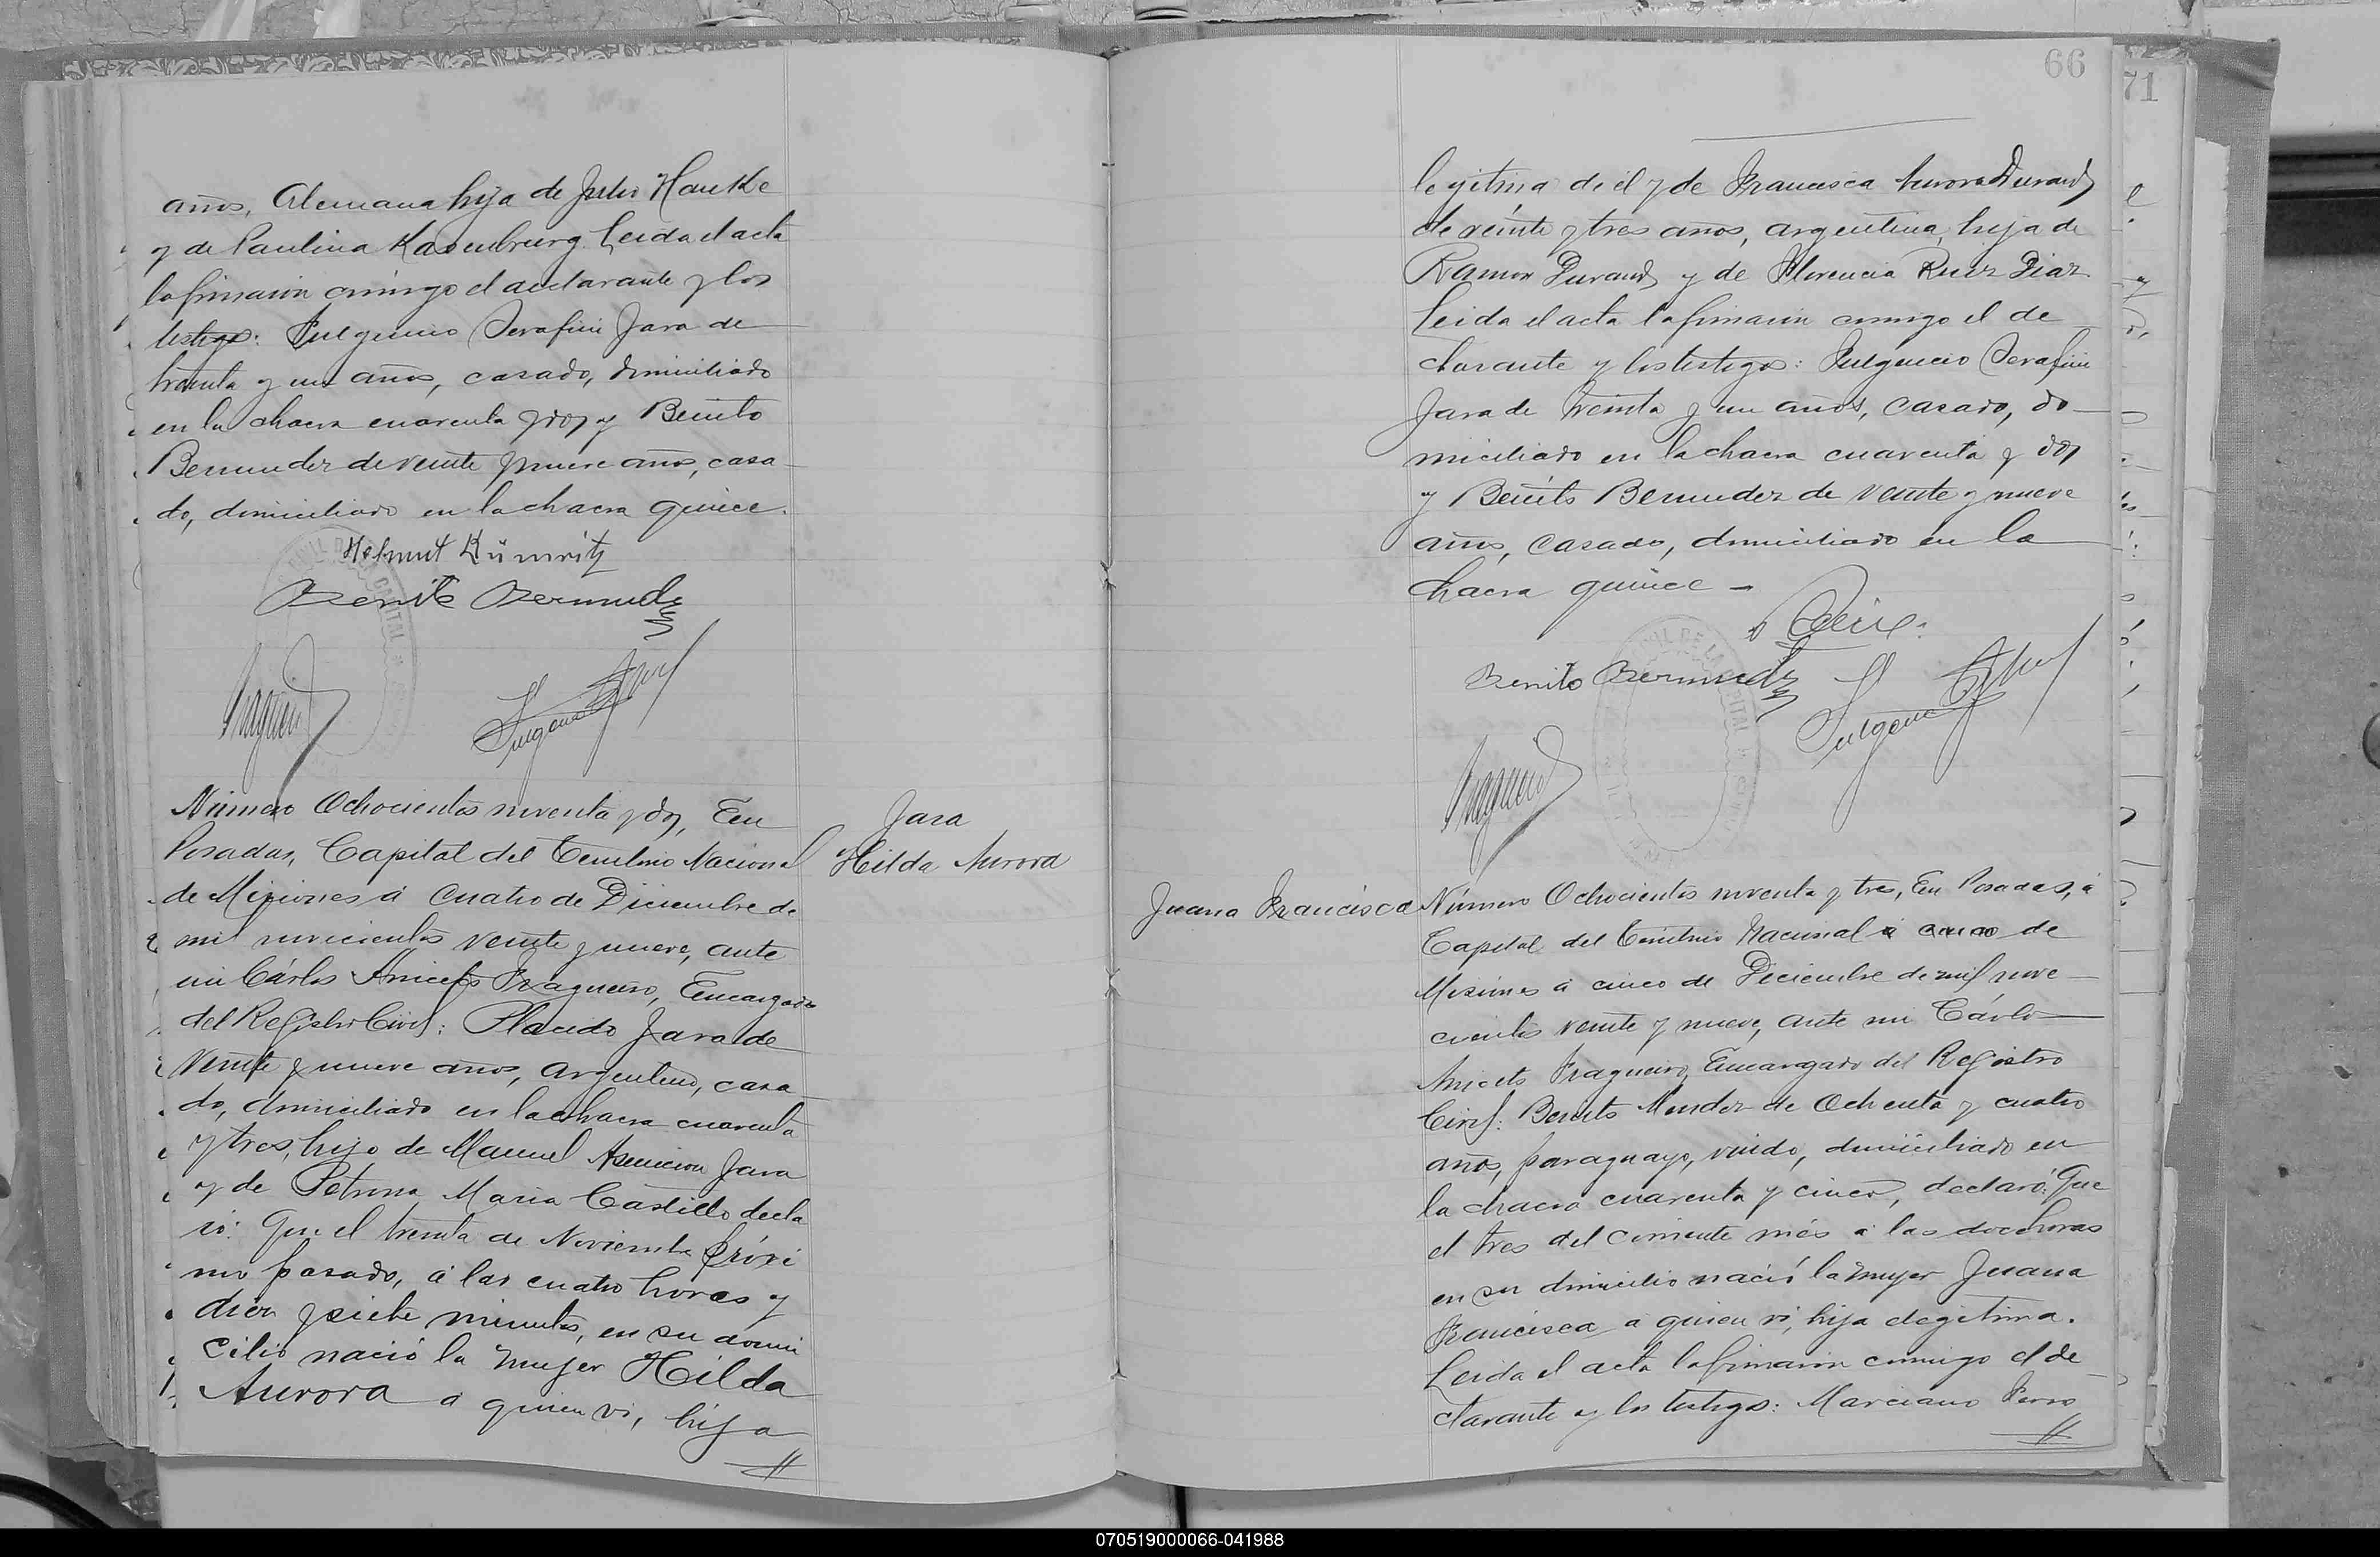 años, Alemana hija de Julio Hautke
y de Paulina Kasenbrurg Leida el acta
la firmaron conmigo el declarante y los
testigos: Fulgencio Serafin Jara de
treinta y un años, casado, domiciliado
en la chacra cuarenta y dos y Benito
Bermudez de veinte y nueve años, casa
do, domiciliado en la chacra quince.
Helmut Kümritz
Benito Bermudez
Número Ochocientos noventa y dos, En
Posadas, Capital del Territorio Nacional
de Misiones á cuatro de Diciembre de
mil novecientos veinte y nueve, ante
mi Cárlos Aniceto Fragueiro, Encargado
del Registro Civil: Placido Jara de
veinte y nueve años, argentino, casa
do, domiciliado en la chacra cuarenta
y tres, hijo de Manuel Asuncion Jara
y de Petrona Maria Castillo decla
ró: Que el treinta de Noviembre próxi
mo pasado, á las cuatro horas y
diez y siete minutos, en su domi
cilio nació la mujer Hilda
Aurora á quien vi, hija
Jara
Hilda Aurora
66
71
legitima de él y de Francisca Aurora Durand
de veinte y tres años, argentina, hija de
Ramon Durand y de Florencia Ruiz Diaz.
Leida el acta la firmaron conmigo el de
clarante y los testigos: Fulgencio Serafin
Jara de treinta y un años, casado, do
miciliado en la chacra cuarenta y dos
y Benito Bermudez de veinte y nueve
años, casado, domiciliado en la
chacra quince
Benito Bermudez
Juana Francisca
Número Ochocientos noventa y tres, En Posadas, á
Capital del Territorio Nacional á cinco de
Misiones á cinco de Diciembre de mil nove
cientos veinte y nueve, ante mi Cárlos
Aniceto Fragueiro, Encargado del Registro
Civil: Benito Mendez de Ochenta y cuatro
años, paraguayo, viudo, domiciliado en
la chacra cuarenta y cinco, declaró: Que
el tres del corriente més á las doce horas
en su domicilio nació la mujer Juana
Francisca á quien vi, hija ilegitima.
Leida el acta la firmaron conmigo el de
clarante y los testigos: Marciano Ferro
070519000066-041988